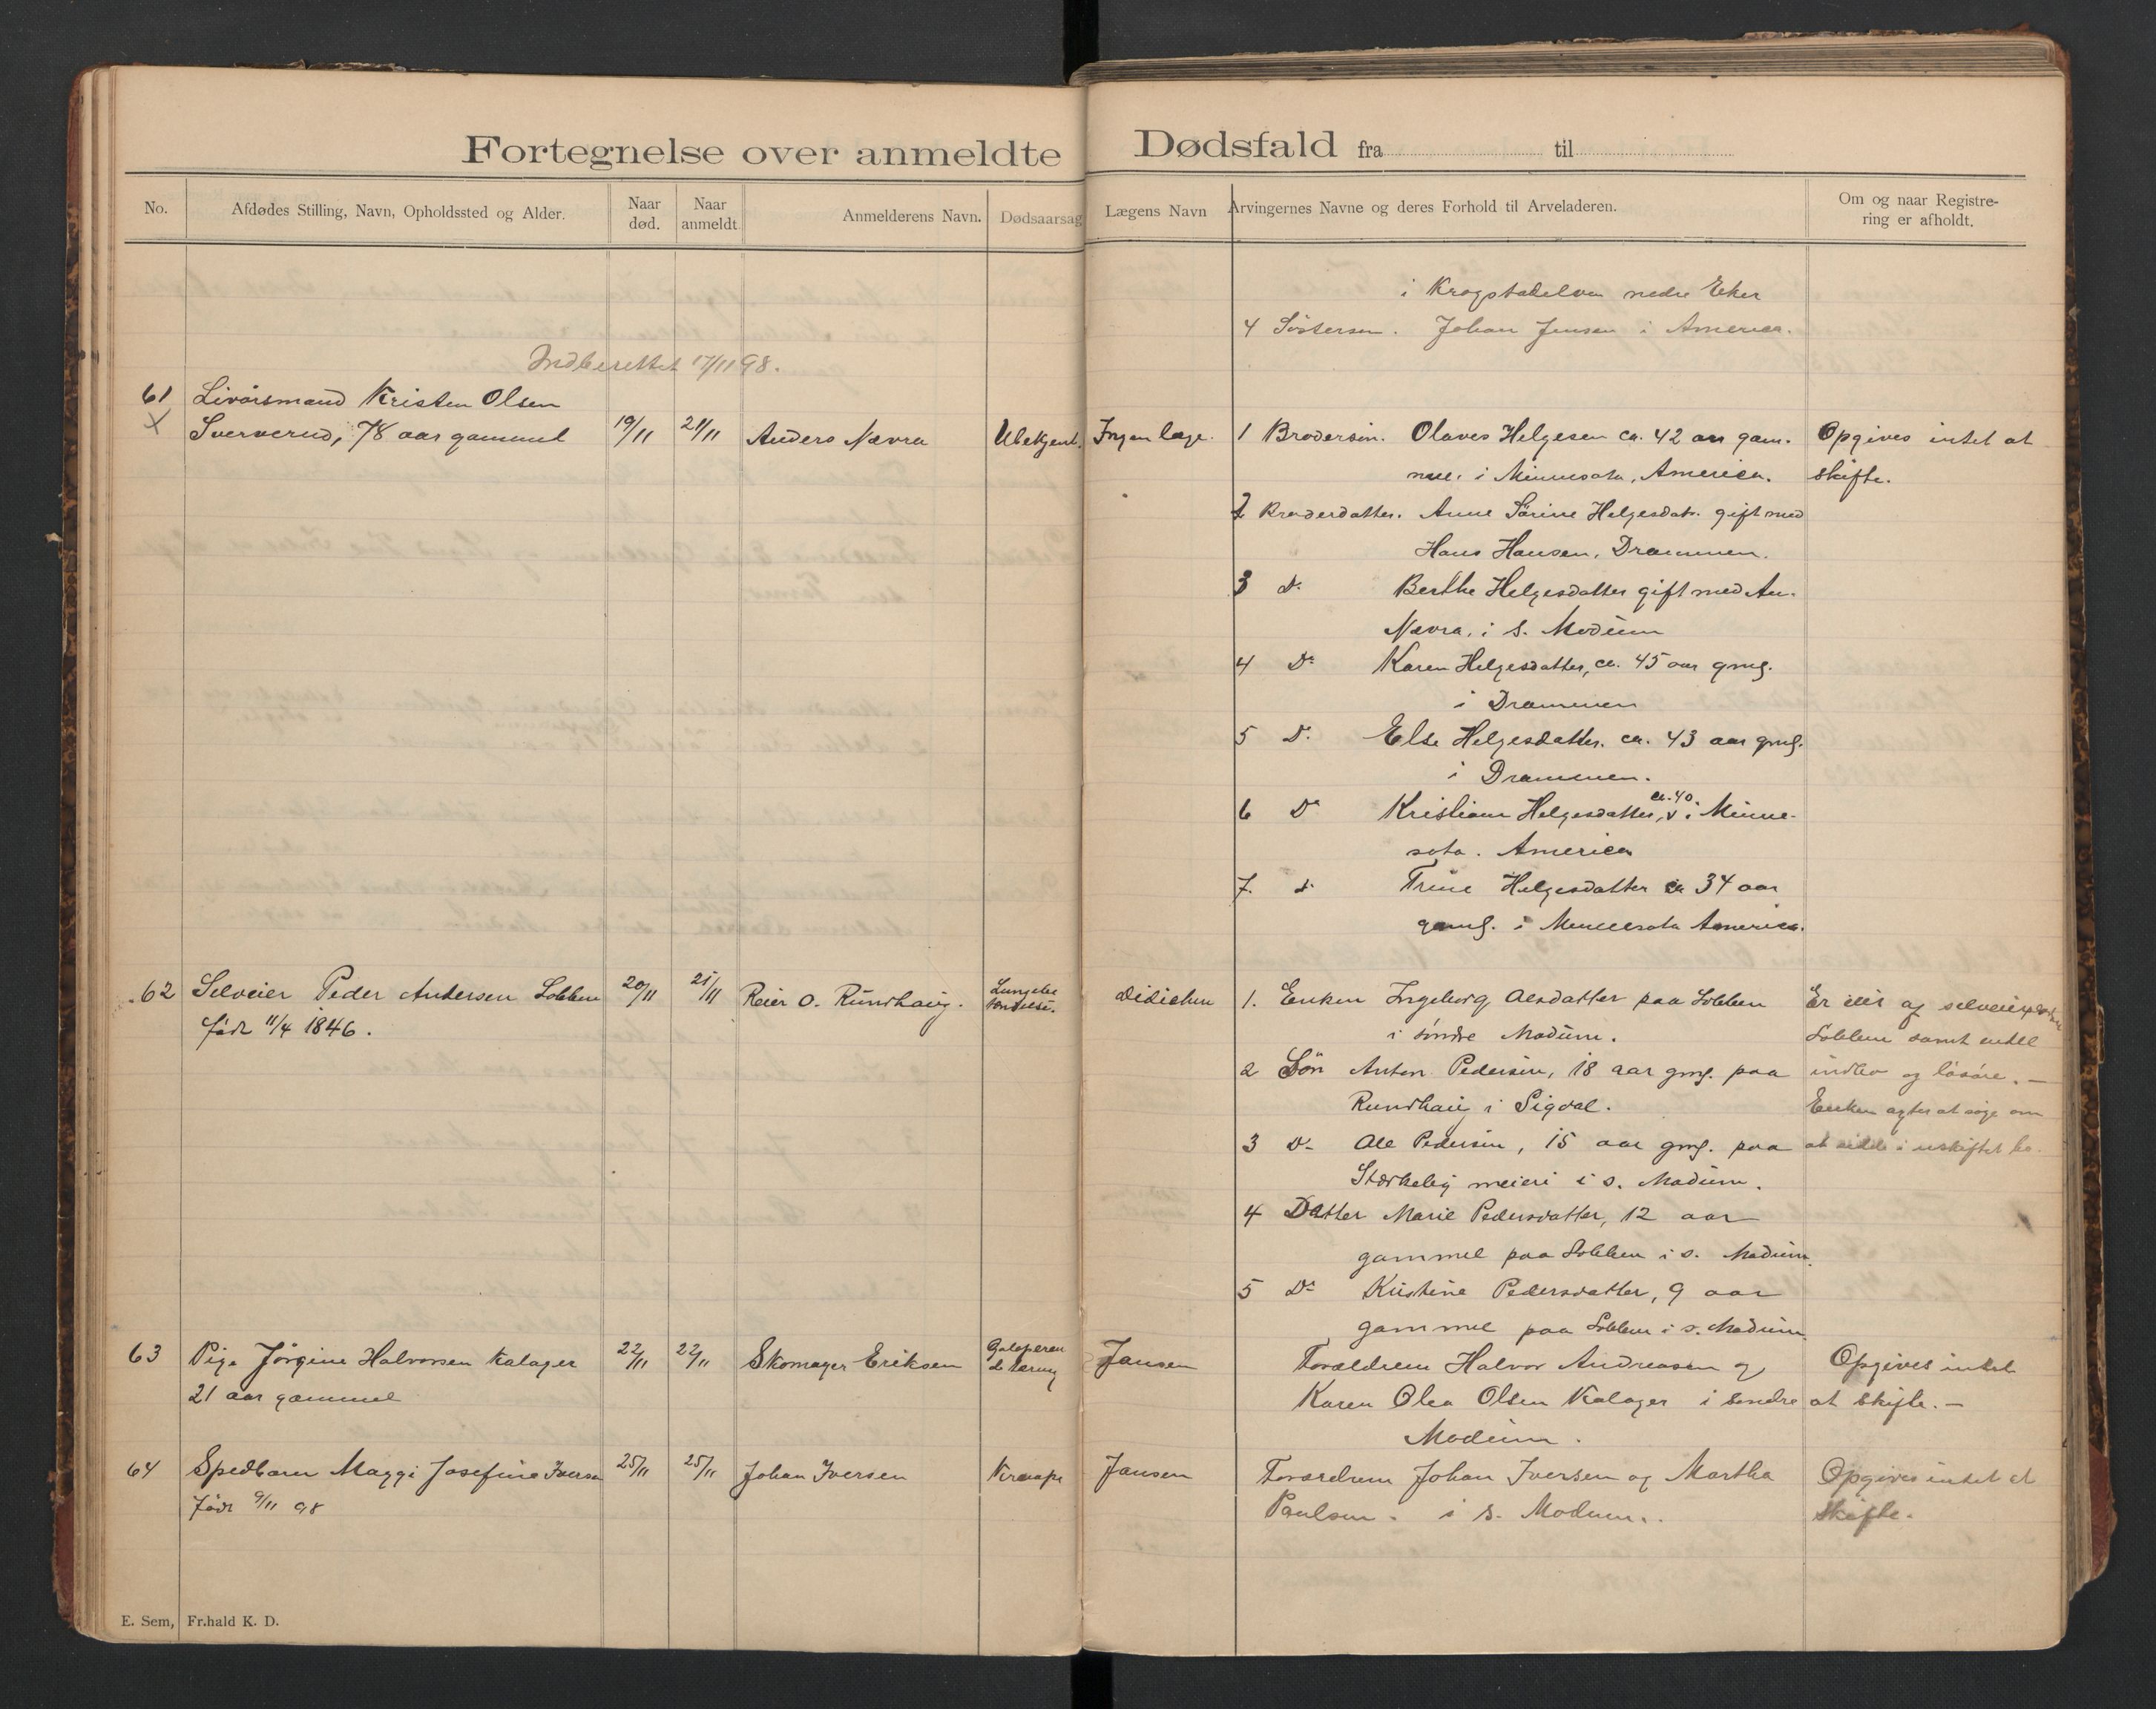 Fortegnelse over anmeldte Dødsfald fra til
No. Afdødes Stilling, Navn, Opholdssted og Alder. Naar død. Naar anmeldt. Anmelderens Navn. Dødsaarsag Lægens Navn Arvingernes Navne og deres Forhold til Arveladeren. Om og naar Registrering er afholdt.
i Krogstadelven nedre Eker
4 Søstersøn. Johan Jensen i America.
Indberettet 17/11 98.
61 Livørsmand Kristen Olsen
Sververud, 78 aar gammel 19/11 21/11 Anders Nævra Ubekjent. Ingen læge. 1 Brodersøn. Olaves Helgesen ca. 42 aar gam- Opgives intet at
mel. i Minnesota, America. skifte.
2 Broderdatter. Anne Sørine Helgesdatr. gift med
Hans Hansen, Drammen.
3 Do Berthe Helgesdatter gift med An.
Nævra, i S. Modum
4 Do Karen Helgesdatter, ca. 45 aar gml.
i Drammen
5 Do Else Helgesdatter. ca. 43 aar gml.
i Drammen.
6 Do Kristiane Helgesdatter, ca. 40 i Minne-
sota. America
7. do Trine Helgesdatter ca 34 aar
gaml. i Minnesota America.
62 Selveier Peder Andersen Lobben 20/11 21/11 Reier O. Rundhaug. Lungebe Didichen 1. Enken Ingeborg Olsdatter paa Lobben Er eier af selveier
født 11/4 1846. tændelse. i søndre Modum. Lobben samt endel
2 Søn Anton Pedersen, 18 aar gml. paa indbo og løsøre. —
Rundhaug i Sigdal. Enken agter at søge om
3 Do Ole Pedersen, 15 aar gml. paa at sidde i uskiftet bo.
Stærkeby meieri i s. Modum.
4 Datter Marie Pedersdatter, 12 aar
gammel paa Lobben i s. Modum.
5 Do Kristine Pedersdatter, 9 aar
gammel paa Lobben i s. Modum.
63 Pige Jørgine Halvorsen Kalager 22/11 22/11 Skomager Eriksen Galoperende tæring Jansen Forældrene Halvor Andreasen og Opgives intet
21 aar gammel Karen Olea Olsen Kalager i søndre at skifte. —
Modum.
64 Spedbarn Maggi Josefine Iversen 25/11 25/11 Johan Iversen Krampe Jansen Forældrene Johan Iversen og Martha Opgives intet at
født 9/11 98 Paulsen. i s. Modum. skifte.
E. Sem, Fr.hald K. D.